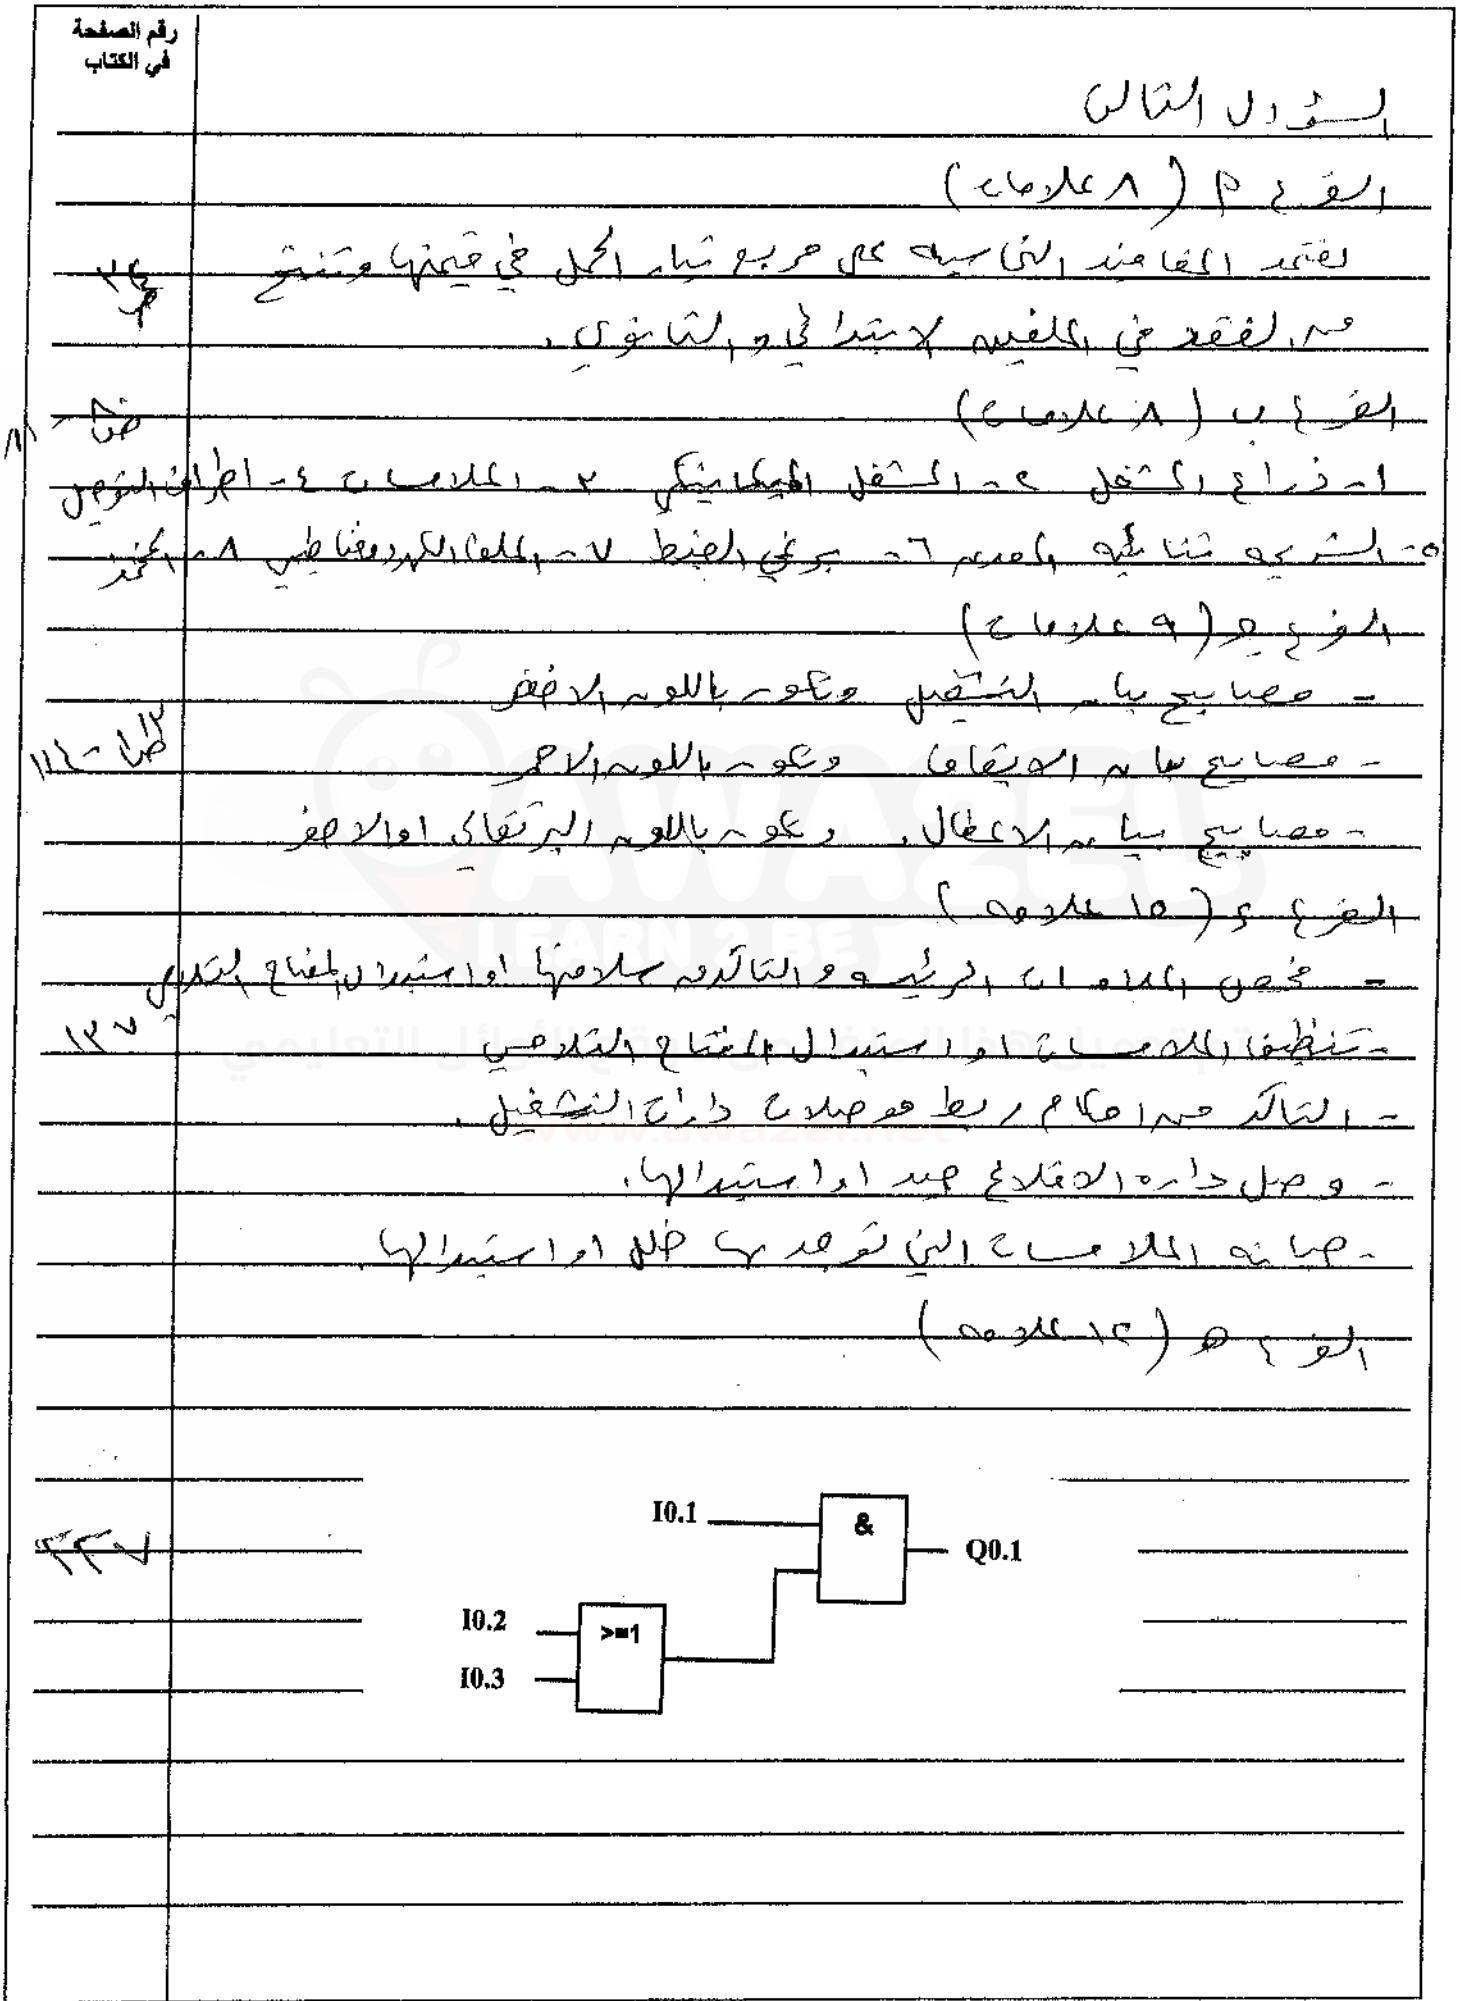 رقم الصفحة
في الكتاب
السؤال الثالث
الفرع أ (٨ علامات)
تعتمد المفاقيد النحاسيه على مربع تيار الحمل في قيمتها وتنتج
من الفقد في الملفين الابتدائي والثانوي.
الفرع ب (٨ علامات)
١- ذراع المشغل ٢- المشغل الميكانيكي ٣- الملامسات ٤- اطراف التوصيل
٥- الشريحه ثنائيه المعدن ٦- برغي الضبط ٧- الملف الكهرومغناطيسي ٨- المخمد
الفرع جـ (٩ علامات)
- مصابيح بيان التشغيل وتكون باللون الاخضر
- مصابيح بيان الايقاف وتكون باللون الاحمر
- مصابيح بيان الاعطال. وتكون باللون البرتقالي او الاصفر
الفرع د (١٥ علامه)
- فحص الملامسات الرئيسه والتاكد من سلامتها او استبدال المفتاح التلامسي
١٣٧
- تنظيف الملامسات او استبدال المفتاح التلامسي
- التاكد من احكام ربط موصلات دارات التشغيل.
- وصل داره الاقلاع جيد او استبدالها.
- صيانه الملامسات التي توجد بها خلل او استبدالها
الفرع هـ (١٢ علامه)
I0.1 & Q0.1
٢٣٧
I0.2 >=1
I0.3
AWA2EL
LEARN 2 BE
www.awa2el.net